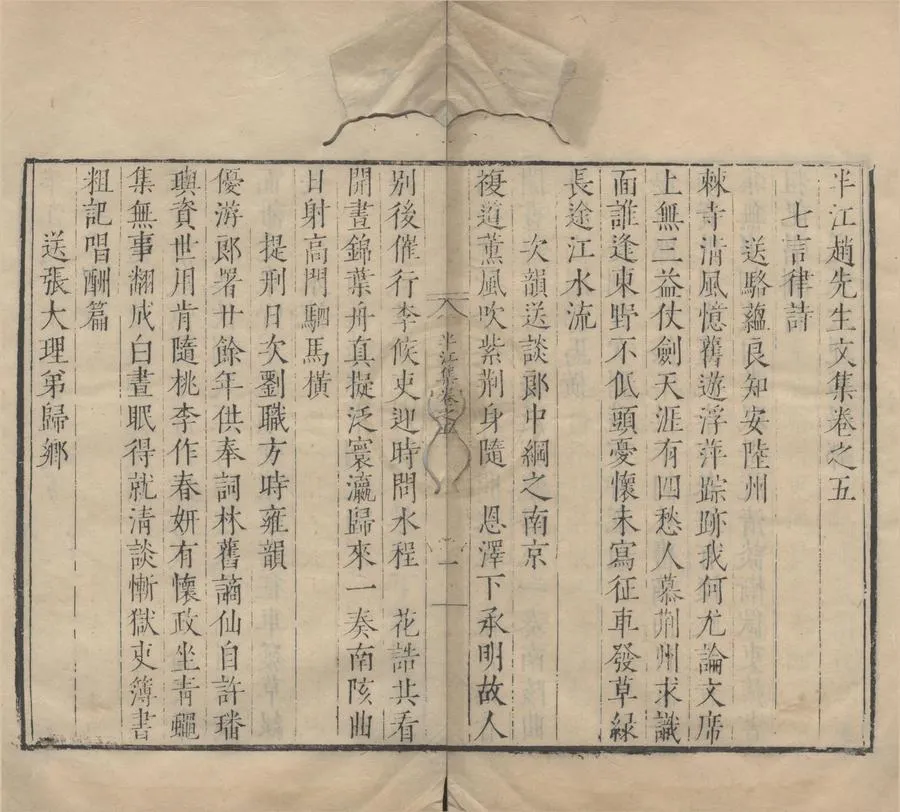 半江趙先生文集卷之五
七言律詩
送駱蘊良知安陸州
棘寺清風憶舊遊浮萍踪跡我何尤論文席
上無三益仗劍天涯有四愁人慕荆州求識
面誰逢東野不低頭憂懷未寫征車發草緑
長途江水流
次韻送談郎中綱之南京
複道薰風吹紫荆身隨　恩澤下承明故人
半江集卷之五
一
别後催行李候吏迎時問水程　花誥共看
開晝錦葉舟真擬泛寰瀛歸來一奏南陔曲
日射高門駟馬橫
提刑日次劉職方時雍韻
優游郎署廿餘年供奉詞林舊謫仙自許璠
璵資世用肯隨桃李作春妍有懷政坐青蠅
集無事翻成白晝眠得就清談慚獄吏簿書
粗記唱酬篇
送張大理弟歸鄉